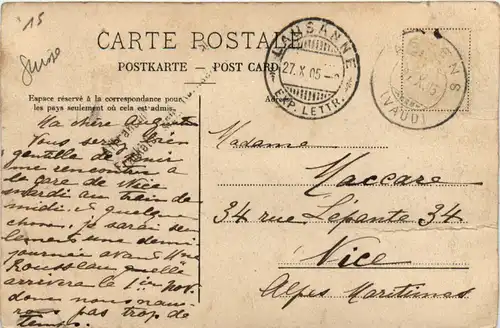 15
Suisse
CARTE POSTALE
POSTKARTE — POST CARD
Espace réservé à la correspondance pour
les pays seulement où cela est admis.
LAUSANNE
27. X 05
EXP. LETTR.
ENS
(VAUD)
Ma chère
Vous serez bien
gentille de venir
me rencontrer à
la gare de Nice
mardi au train de
midi et quelque
chose, je serai seu
lement une demi
journée avant Mme
Rousseau quelle
arrivera le 1ier Nov.
donc nous n'au-
rons pas trop de
temps.
Madame
Maccare
34 rue Lépante 34
Nice
Alpes Maritimes